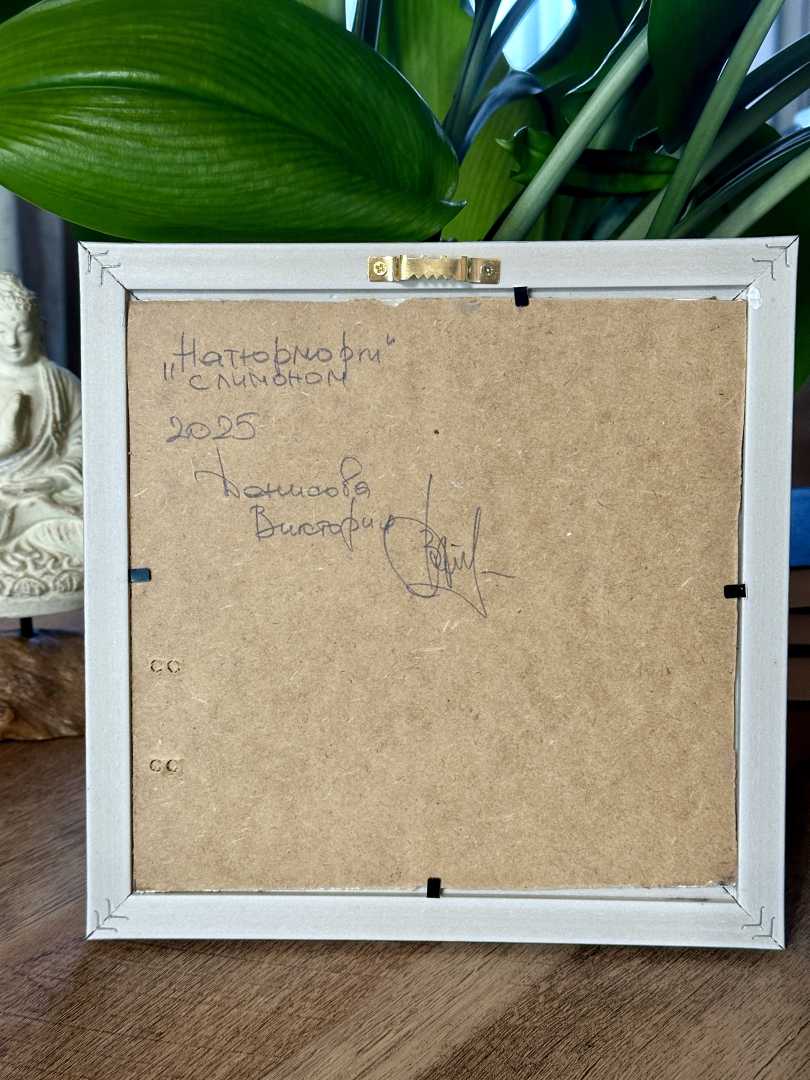 „Натюрморт“
с лимоном
2025
Денисова
Виктория